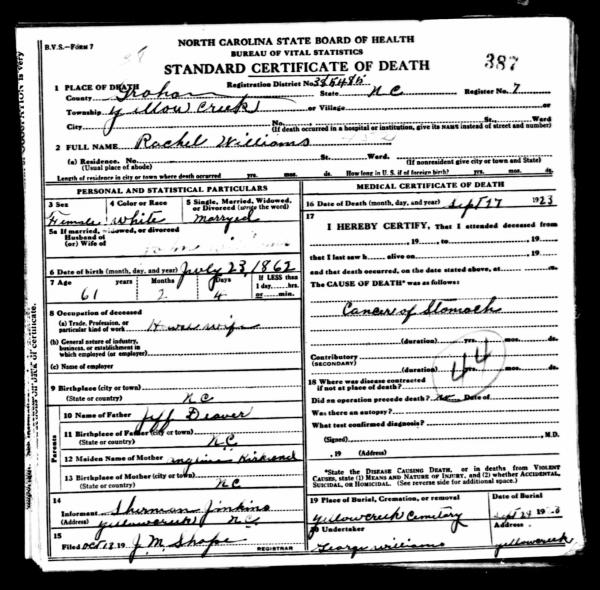 B.V.S.—FORM 7
NORTH CAROLINA STATE BOARD OF HEALTH
BUREAU OF VITAL STATISTICS
STANDARD CERTIFICATE OF DEATH
387
1 PLACE OF DEATH Registration District No. 385485 Register No. 7
County Graham State N C
Township Yellow Creek or Village or
City No. St. Ward
(If death occurred in a hospital or institution, give its NAME instead of street and number)
2 FULL NAME Rachel Williams
(a) Residence. No. St. Ward.
(Usual place of abode) (If nonresident give city or town and State)
Length of residence in city or town where death occurred yrs. mos. ds. How long in U. S. if of foreign birth? yrs. mos. ds.
PERSONAL AND STATISTICAL PARTICULARS
3 Sex 4 Color or Race 5 Single, Married, Widowed, or Divorced (write the word)
Female White Marryed
5a If married, widowed, or divorced
Husband of
(or) Wife of
6 Date of birth (month, day, and year) July 23, 1862
7 Age years Months Days If LESS than
1 day, hrs.
or min.
61 2 4
8 Occupation of deceased
(a) Trade, Profession, or
particular kind of work House wife
(b) General nature of industry,
business, or establishment in
which employed (or employer)
(c) Name of employer
9 Birthplace (city or town)
(State or country) N C
Parents
10 Name of Father Jeff Deaver
11 Birthplace of Father (city or town)
(State or country) N C
12 Maiden Name of Mother
13 Birthplace of Mother (city or town)
(State or country) N C
14
Informant Sherman Jinkins
(Address) yellowcreek N C
15
Filed Oct 13, 19 J. M. Shope
REGISTRAR
MEDICAL CERTIFICATE OF DEATH
16 Date of Death (month, day, and year) Sept 27 1923
17
I HEREBY CERTIFY, That I attended deceased from
, 19 to , 19
that I last saw h alive on , 19
and that death occurred, on the date stated above, at m.
The CAUSE OF DEATH* was as follows:
Cancer of Stomach
(duration) yrs. mos. ds.
Contributory
(SECONDARY)
(duration) yrs. mos. ds.
44
18 Where was disease contracted
if not at place of death?
Did an operation precede death? no Date of
Was there an autopsy?
What test confirmed diagnosis?
(Signed) , M.D.
, 19 (Address)
*State the DISEASE CAUSING DEATH, or in deaths from VIOLENT
CAUSES, state (1) MEANS AND NATURE OF INJURY, and (2) whether ACCIDENTAL,
SUICIDAL, OR HOMICIDAL. (See reverse side for additional space.)
19 Place of Burial, Cremation, or removal Date of Burial
Yellowcreek Cemetery Sept 29 19
20 Undertaker Address
George Williams yellowcreek